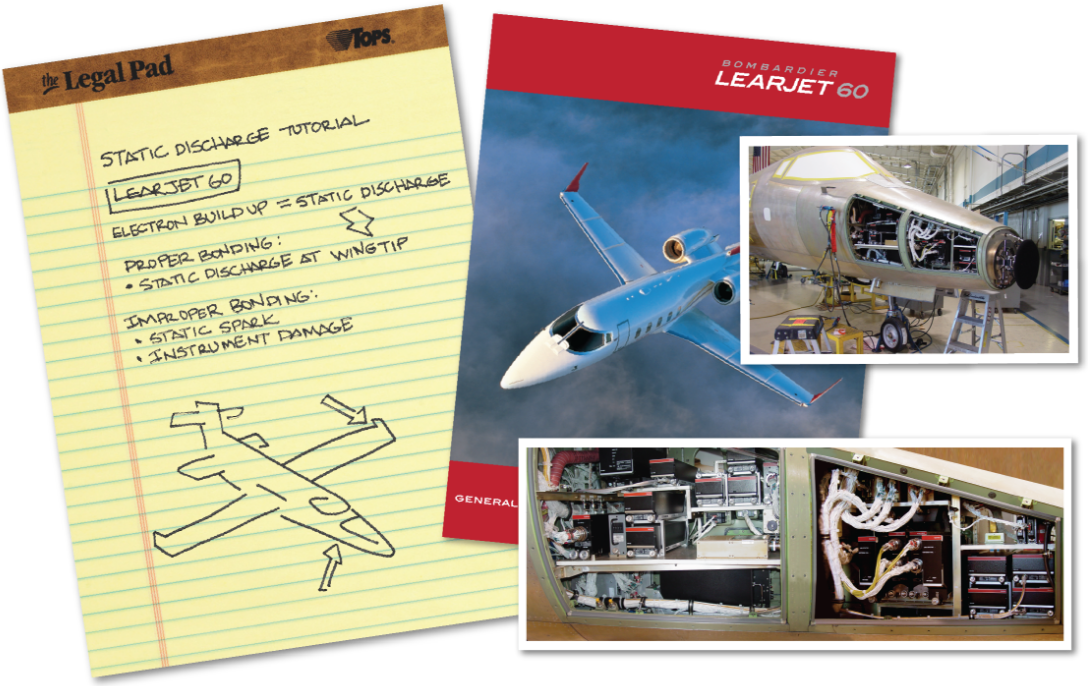 the Legal Pad
TOPS
STATIC DISCHARGE TUTORIAL
LEARJET 60
ELECTRON BUILD UP = STATIC DISCHARGE
PROPER BONDING:
• STATIC DISCHARGE AT WINGTIP
IMPROPER BONDING:
• STATIC SPARK
• INSTRUMENT DAMAGE
BOMBARDIER
LEARJET 60
GENERAL